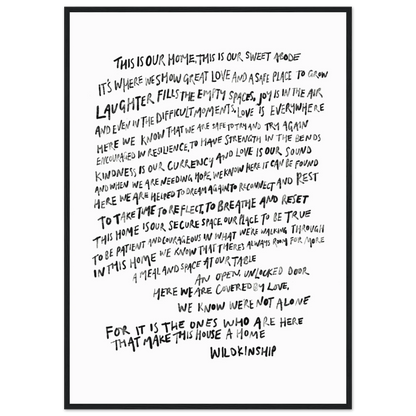 THIS IS OUR HOME, THIS IS OUR SWEET ABODE
IT'S WHERE WE SHOW GREAT LOVE AND A SAFE PLACE TO GROW
LAUGHTER FILLS THE EMPTY SPACES, JOY IS IN THE AIR
AND EVEN IN THE DIFFICULT MOMENTS, LOVE IS EVERYWHERE
HERE WE KNOW THAT WE ARE SAFE TO TRY AND TRY AGAIN
ENCOURAGED IN RESILIENCE, TO HAVE STRENGTH IN THE BENDS
KINDNESS IS OUR CURRENCY AND LOVE IS OUR SOUND
AND WHEN WE ARE NEEDING HOPE, WE KNOW HERE IT CAN BE FOUND
HERE WE ARE HELPED TO DREAM AGAIN TO RECONNECT AND REST
TO TAKE TIME TO REFLECT, TO BREATHE AND RESET
THIS HOME IS OUR SECURE SPACE, OUR PLACE TO BE TRUE
TO BE PATIENT AND COURAGEOUS IN WHAT WE'RE WALKING THROUGH
IN THIS HOME WE KNOW THAT THERE'S ALWAYS ROOM FOR MORE
A MEAL AND SPACE AT OUR TABLE
AN OPEN, UNLOCKED DOOR
HERE WE ARE COVERED BY LOVE,
WE KNOW WERE NOT ALONE
FOR IT IS THE ONES WHO ARE HERE
THAT MAKE THIS HOUSE A HOME
WILDKINSHIP